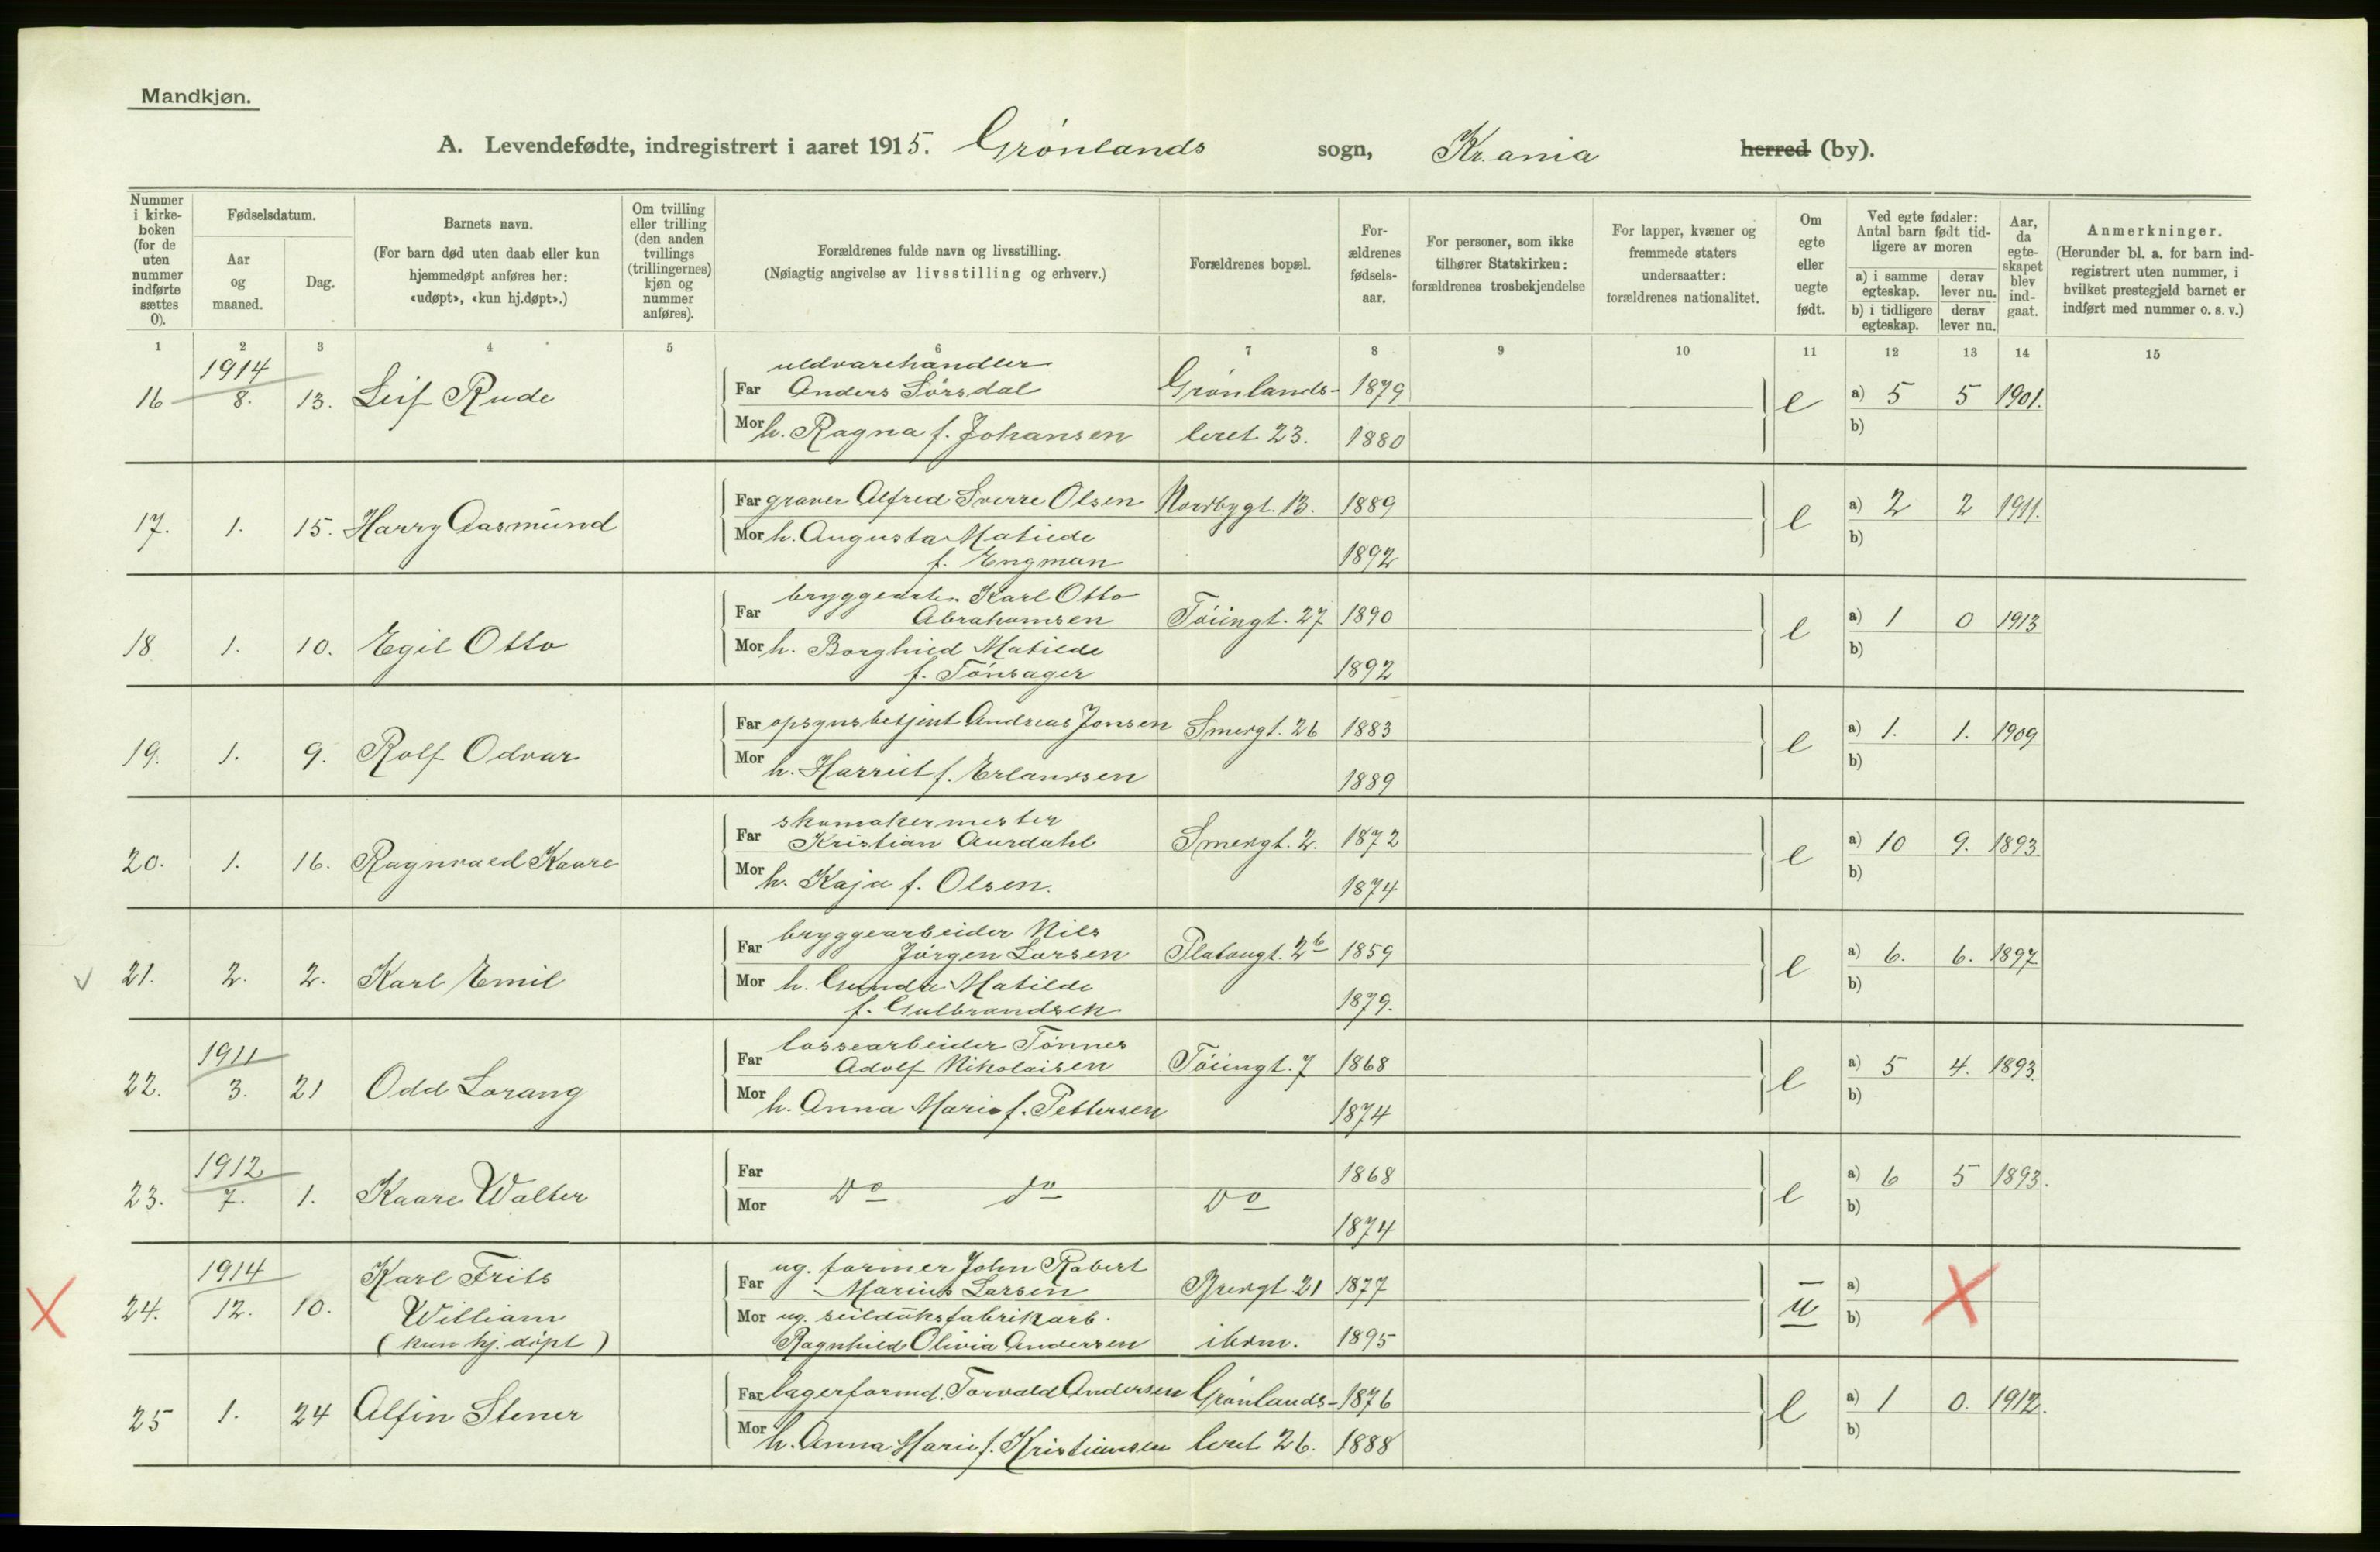 Mandkjøn.
A. Levendefødte, indregistrert i aaret 1915. Grønlands sogn, Kr.ania herred (by).
Nummer i kirke-boken (for de uten nummer indførte sættes 0).
Fødselsdatum.
Aar og maaned.
Dag.
Barnets navn.
(For barn død uten daab eller kun hjemmedøpt anføres her: «udøpt», «kun hj.døpt».)
Om tvilling eller trilling (den anden tvillings (trillingernes) kjøn og nummer anføres).
Forældrenes fulde navn og livsstilling.
(Nøiagtig angivelse av livsstilling og erhverv.)
Forældrenes bopæl.
For-ældrenes fødsels-aar.
For personer, som ikke tilhører Statskirken: forældrenes trosbekjendelse
For lapper, kvæner og fremmede staters undersaatter: forældrenes nationalitet.
Om egte eller uegte født.
Ved egte fødsler: Antal barn født tid-ligere av moren
a) i samme egteskap. derav lever nu.
b) i tidligere egteskap. derav lever nu.
Aar, da egte-skapet blev ind-gaat.
Anmerkninger.
(Herunder bl. a. for barn ind-registrert uten nummer, i hvilket prestegjeld barnet er indført med nummer o. s. v.)
1 2 3 4 5 6 7 8 9 10 11 12 13 14 15
1914 uldvarehandler
16 8. 13. Leif Rude Far Anders Sørsdal Grønlands- 1879 e a) 5 5 1901.
Mor h. Ragna f. Johansen leret 23. 1880 b)
17. 1. 15. Harry Aasmund Far graver Alfred Sverre Olsen Nordbygt. 13. 1889 e a) 2 2 1911.
Mor h. Augusta Matilde b)
f. Engman 1892
bryggearb. Karl Otto
18 1. 10. Egil Otto Far Abrahamsen Tøiengt. 27 1890 e a) 1 0 1913
Mor h. Borghild Matilde b)
f. Tønsager 1892
19. 1. 9. Rolf Odvar Far opsynsbetjent Andreas Jonsen Smergt. 26 1883 e a) 1. 1. 1909
Mor h. Harriet f. Erlandsen 1889 b)
skomakermester
20. 1. 16. Ragnvald Kaare Far Kristian Aurdahl Smergt. 2. 1872 e a) 10 9. 1893.
Mor h. Kaja f. Olsen. 1874 b)
bryggearbeider Nils
21. 2. 2. Karl Emil Far Jørgen Larsen Platougt. 2b 1859 e a) 6. 6. 1897
Mor h. Gunda Matilde b)
f. Gulbrandsen 1879.
1911 lossearbeider Tønnes
22. 3. 21 Odd Lorang Far Adolf Nikolaisen Tøiengt. 7 1868 e a) 5 4. 1893
Mor h. Anna Marie f. Pettersen 1874 b)
1912
23. 7. 1. Kaare Walter Far 1868 e a) 6 5 1893.
Mor Do do Do 1874 b)
1914 Karl Frits ug. former John Robert
24. 12. 10. William Far Marius Larsen Brergt. 21 1877 u a)
Mor ug. seilduksfabrikarb. b)
(kun hj. døpt) Ragnhild Olivia Andersen ibdm. 1895
25 1. 24 Alfin Stener Far lagerformd. Torvald Andersen Grønlands- 1876 e a) 1 0. 1912.
Mor h. Anna Marie f. Kristiansen leret 26. 1888 b)